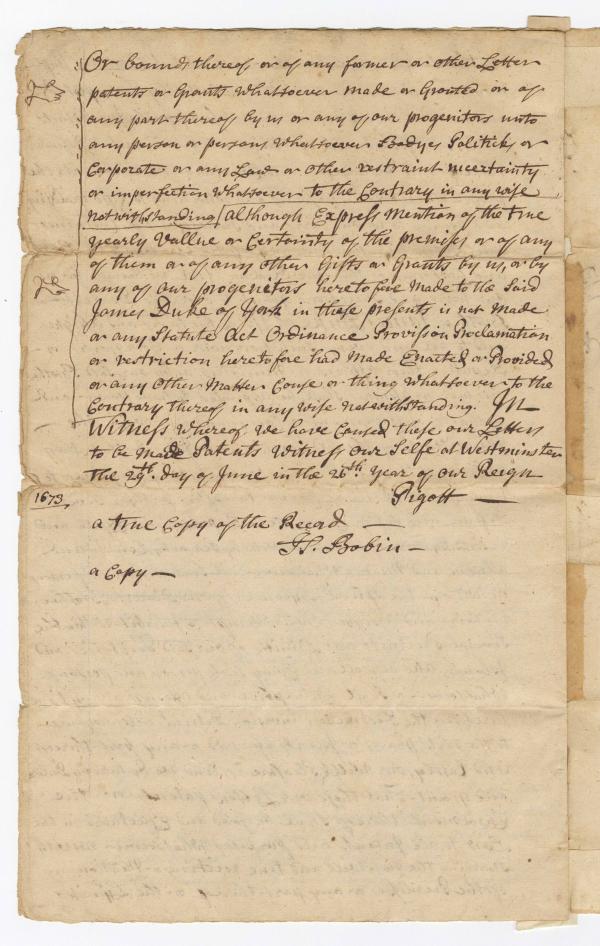 Or bounds thereof or of any former or other Letters
patents or Grants Whatsoever made or Granted or of
any part thereof by us or any of our progenitors unto
any person or persons Whatsoever Bodyes Politick or
Corporate or any Law or other restraint incertainty
or imperfection Whatsoever to the Contrary in any wise
notwithstanding [although Express Mention of the true
yearly Vallue or Certainty of the premises or of any
of them or of any other Gifts or Grants by us, or by
any of our progenitors heretofore made to the Said
James Duke of York in these presents is not made
or any Statute Act Ordinance Provission Proclamation
or restriction heretofore had Made Enacted or Provided
or any other Matter Couse or thing Whatsoever to the
Contrary thereof in any wise notwithstanding. In
Witness Whereof We have Caused these our Letters
to be made Patents Witness our Selfe at Westminster
the 29th. day of June in the 26th Year of our Reign
Pigott —
1673
a true Copy of the Record —
Is. Bobin —
a Copy —